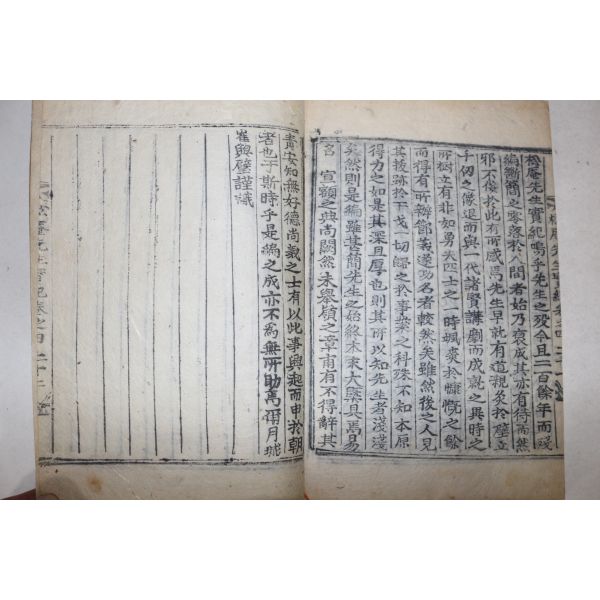 松庵先生實紀嗚乎先生之歿今且二百餘年而殘
編斷簡之零落於人間者始乃裒成其亦有待而然
邪不佞於此有所感焉先生早就有道親炙於壁立
千仞之像退而與一代諸賢講劘而成就之與時之
所樹立有非如勇夫四士之一時颯爽於慷慨之餘
而得有所辦鄧義達功名者較然矣雖然後之人見
其發跡於干戈一切歸之於事業之科殊不知本原
得力之如是其深且厚也則其所以知先生者淺淺
矣然則是編雖甚簡先生之始終本末大畧具焉易
名宣額之典尚闕然未舉嶺之章甫有不得辭其
責安知無好德尚義之士有以此事興起而申於朝
者也于斯時乎是編之成亦不爲無所助焉爾月城
崔興璧謹識
松庵先生實紀卷之四 二十二